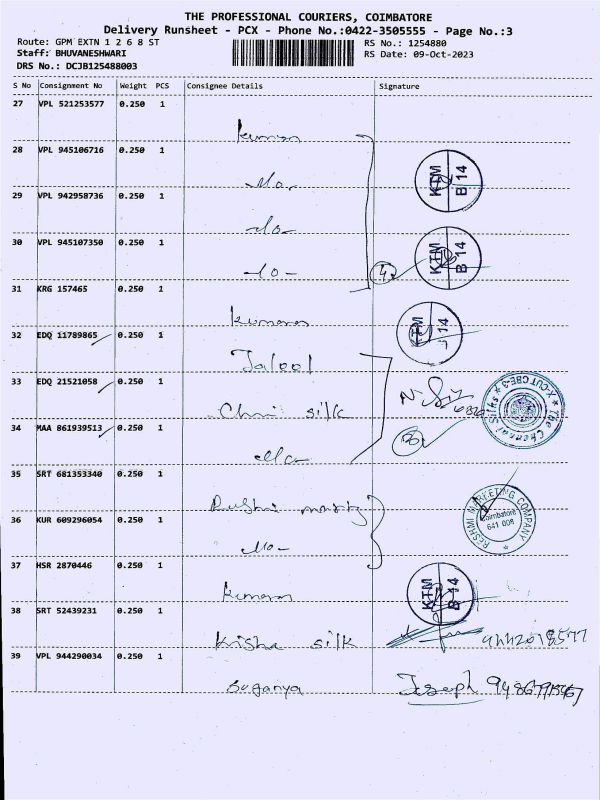 THE PROFESSIONAL COURIERS, COIMBATORE
Delivery Runsheet - PCX - Phone No.:0422-3505555 - Page No.:3
Route: GPM EXTN 1 2 6 8 ST
RS No.: 1254880
Staff: BHUVANESHWARI
RS Date: 09-Oct-2023
DRS No.: DCJB125488003
S No Consignment No Weight PCS Consignee Details Signature
27 VPL 521253577 0.250 1
kumaran
28 VPL 945106716 0.250 1
KTM B 14
29 VPL 942958736 0.250 1
30 VPL 945107350 0.250 1
KTM B 14
4
31 KRG 157465 0.250 1
kumaran
KTM 14
32 EDQ 11789865 0.250 1
33 EDQ 21521058 0.250 1
silk
The Chennai Silks * X-CUT CBE-3 *
34 MAA 861939513 0.250 1
35 SRT 681353340 0.250 1
RESHMI MARKETING COMPANY
Coimbatore
641 008
36 KUR 609296054 0.250 1
37 HSR 2870446 0.250 1
kumaran
KTM B 14
38 SRT 52439231 0.250 1
Krisha silk
9442018577
39 VPL 944290034 0.250 1
Suganya
Joseph